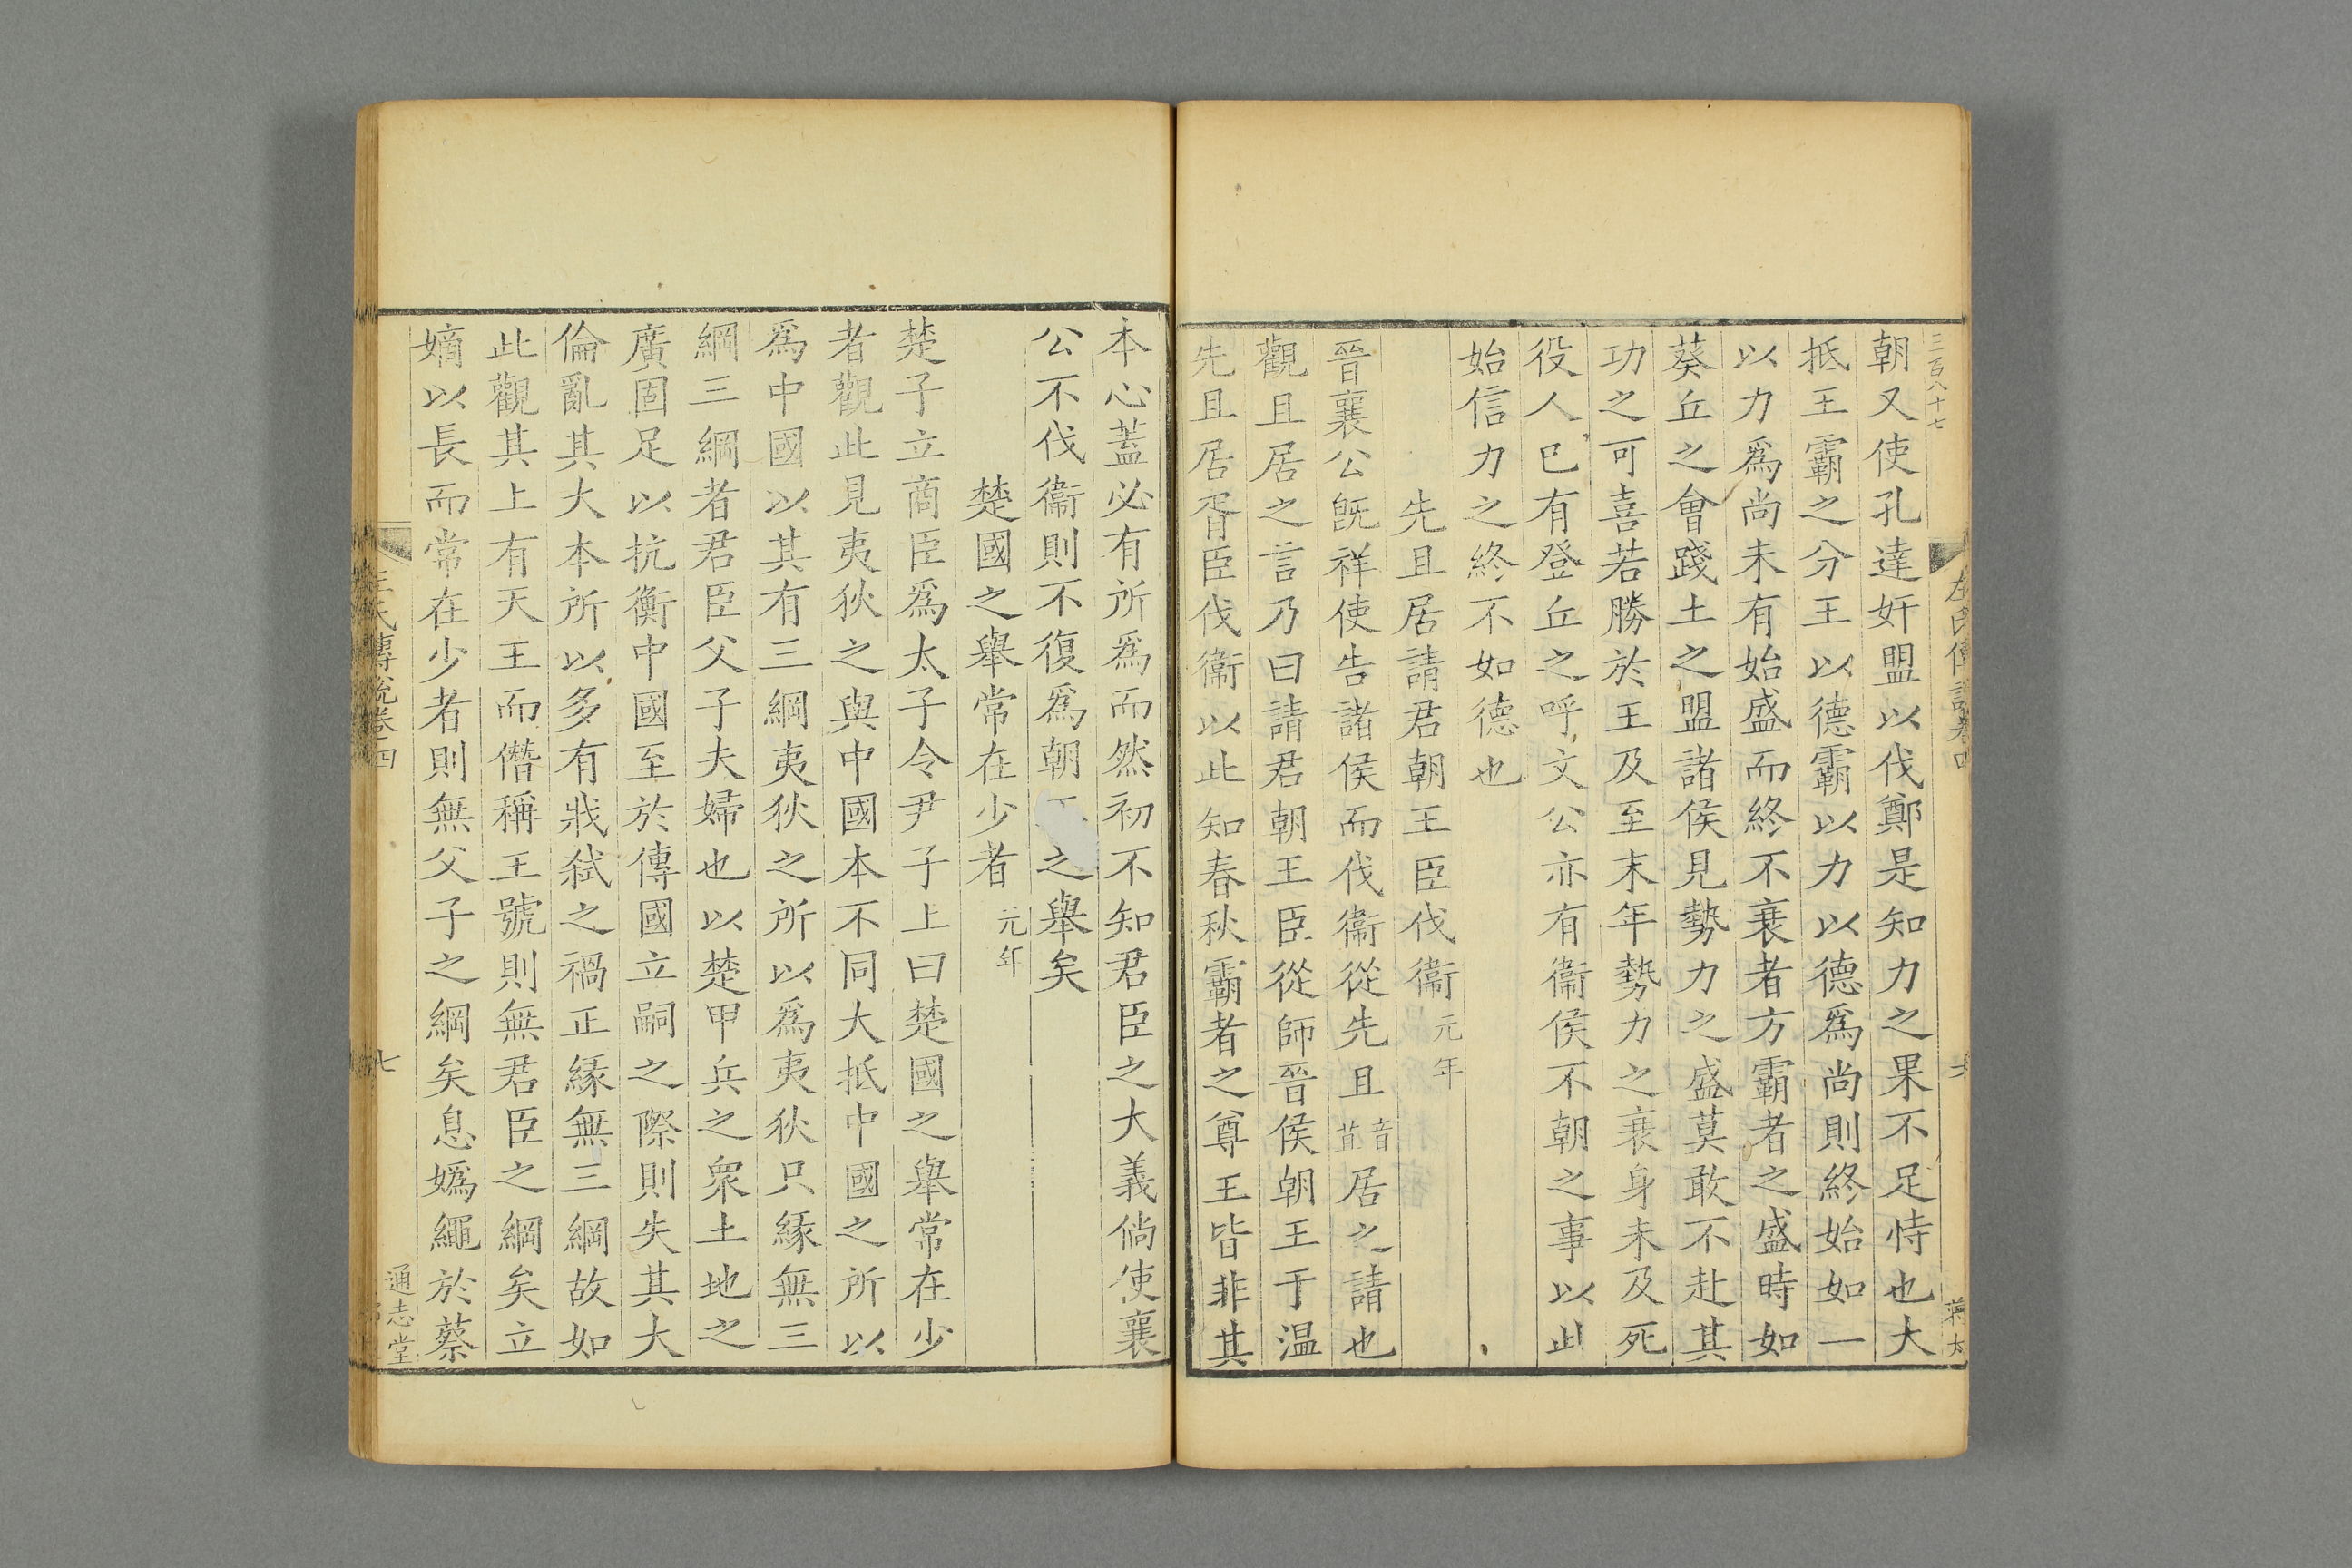 三百八十七
朝又使孔達奸盟以伐鄭是知力之果不足恃也大
抵王霸之分王以德霸以力以德爲尚則終始如一
以力爲尚未有始盛而終不衰者方霸者之盛時如
葵丘之會踐土之盟諸侯見勢力之盛莫敢不赴其
功之可喜若勝於王及至末年勢力之衰身未及死
役人巳有登丘之呼文公亦有衞侯不朝之事以此
始信力之終不如德也
先且居請君朝王臣伐衞元年
晉襄公旣祥使告諸侯而伐衞從先且音苴居之請也
觀且居之言乃曰請君朝王臣從師晉侯朝王于温
先且居胥臣伐衞以此知春秋霸者之尊王皆非其
本心蓋必有所爲而然初不知君臣之大義倘使襄
公不伐衞則不復爲朝之舉矣
楚國之舉常在少者元年
楚子立商臣爲太子令尹子上曰楚國之舉常在少
者觀此見夷狄之與中國本不同大抵中國之所以
爲中國以其有三綱夷狄之所以爲夷狄只緣無三
綱三綱者君臣父子夫婦也以楚甲兵之眾土地之
廣固足以抗衡中國至於傳國立嗣之際則失其大
倫亂其大本所以多有戕弑之禍正緣無三綱故如
此觀其上有天王而僭稱王號則無君臣之綱矣立
嫡以長而常在少者則無父子之綱矣息嬀繩於蔡
左氏傳說卷四
七
通志堂